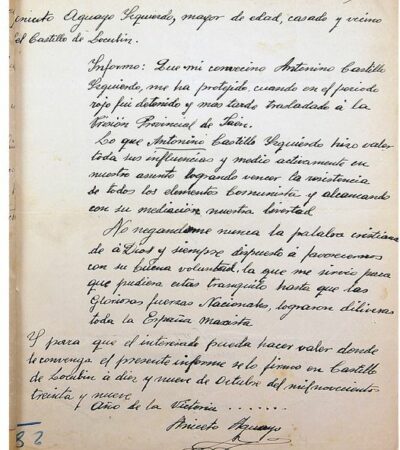 Aniceto Aguayo Izquierdo, mayor de edad, casado y vecino
del Castillo de Locubín.
Informo: Que mi convecino Antonino Castillo
Izquierdo, me ha protejido, cuando en el periodo
rojo fuí detenido y mas tarde trasladado á la
Prisión Provincial de Jaén.
Lo que Antonino Castillo Izquierdo hizo valer
toda sus influencias y medio activamente en
nuestro asunto logrando vencer la resistencia
de todos los elementos Comunista y alcanzando
con su mediación nuestra libertad
No negandome nunca la palabra cristiana
de á Dios y siempre dispuesto á favorecernos
con su buena voluntad, la que me sirvio para
que pudiera estar tranquilo hasta que las
Gloriosas fuerzas Nacionales, lograron
toda la España
Y para que el interesado pueda hacer valer donde
le convenga el presente informe se lo firmo en Castillo
de Locubín á diez y nueve de Octubre del mil novecientos
treinta y nueve
Año de la Victoria ......
Aniceto Aguayo